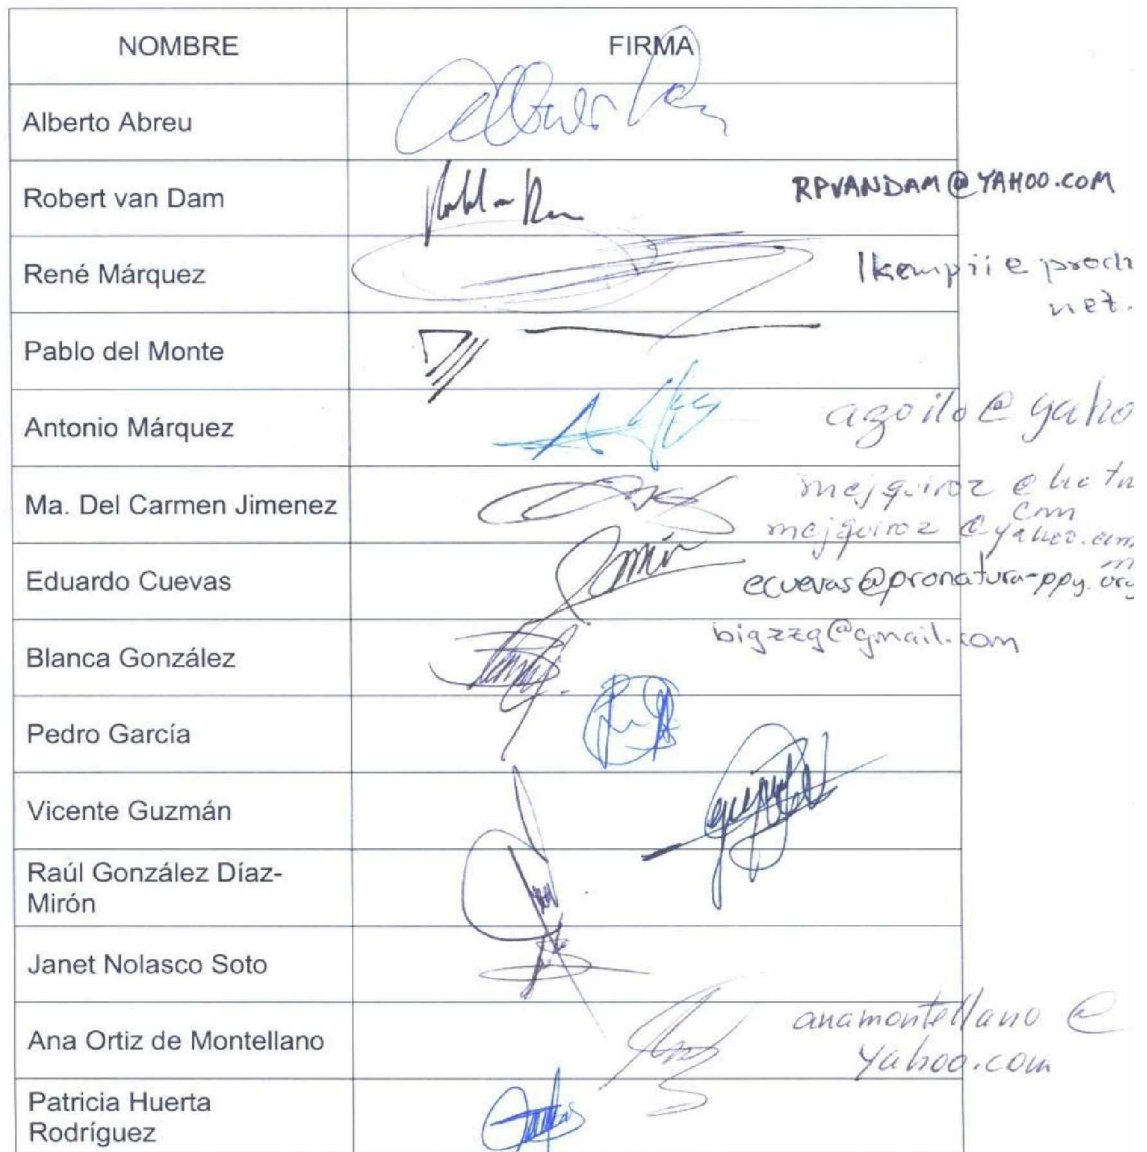 NOMBRE FIRMA
Alberto Abreu
Robert van Dam RPVANDAM@YAHOO.COM
René Márquez lkempii@prodi
net.
Pablo del Monte
Antonio Márquez agoilo@yaho
Ma. Del Carmen Jimenez mcjquiroz@hotm
com
mcjquiroz@yahoo.com
m
Eduardo Cuevas ecuevas@pronatura-ppy.org
Blanca González bigzzg@gmail.com
Pedro García
Vicente Guzmán
Raúl González Díaz-
Mirón
Janet Nolasco Soto
Ana Ortiz de Montellano anamontellano@
yahoo.com
Patricia Huerta
Rodríguez